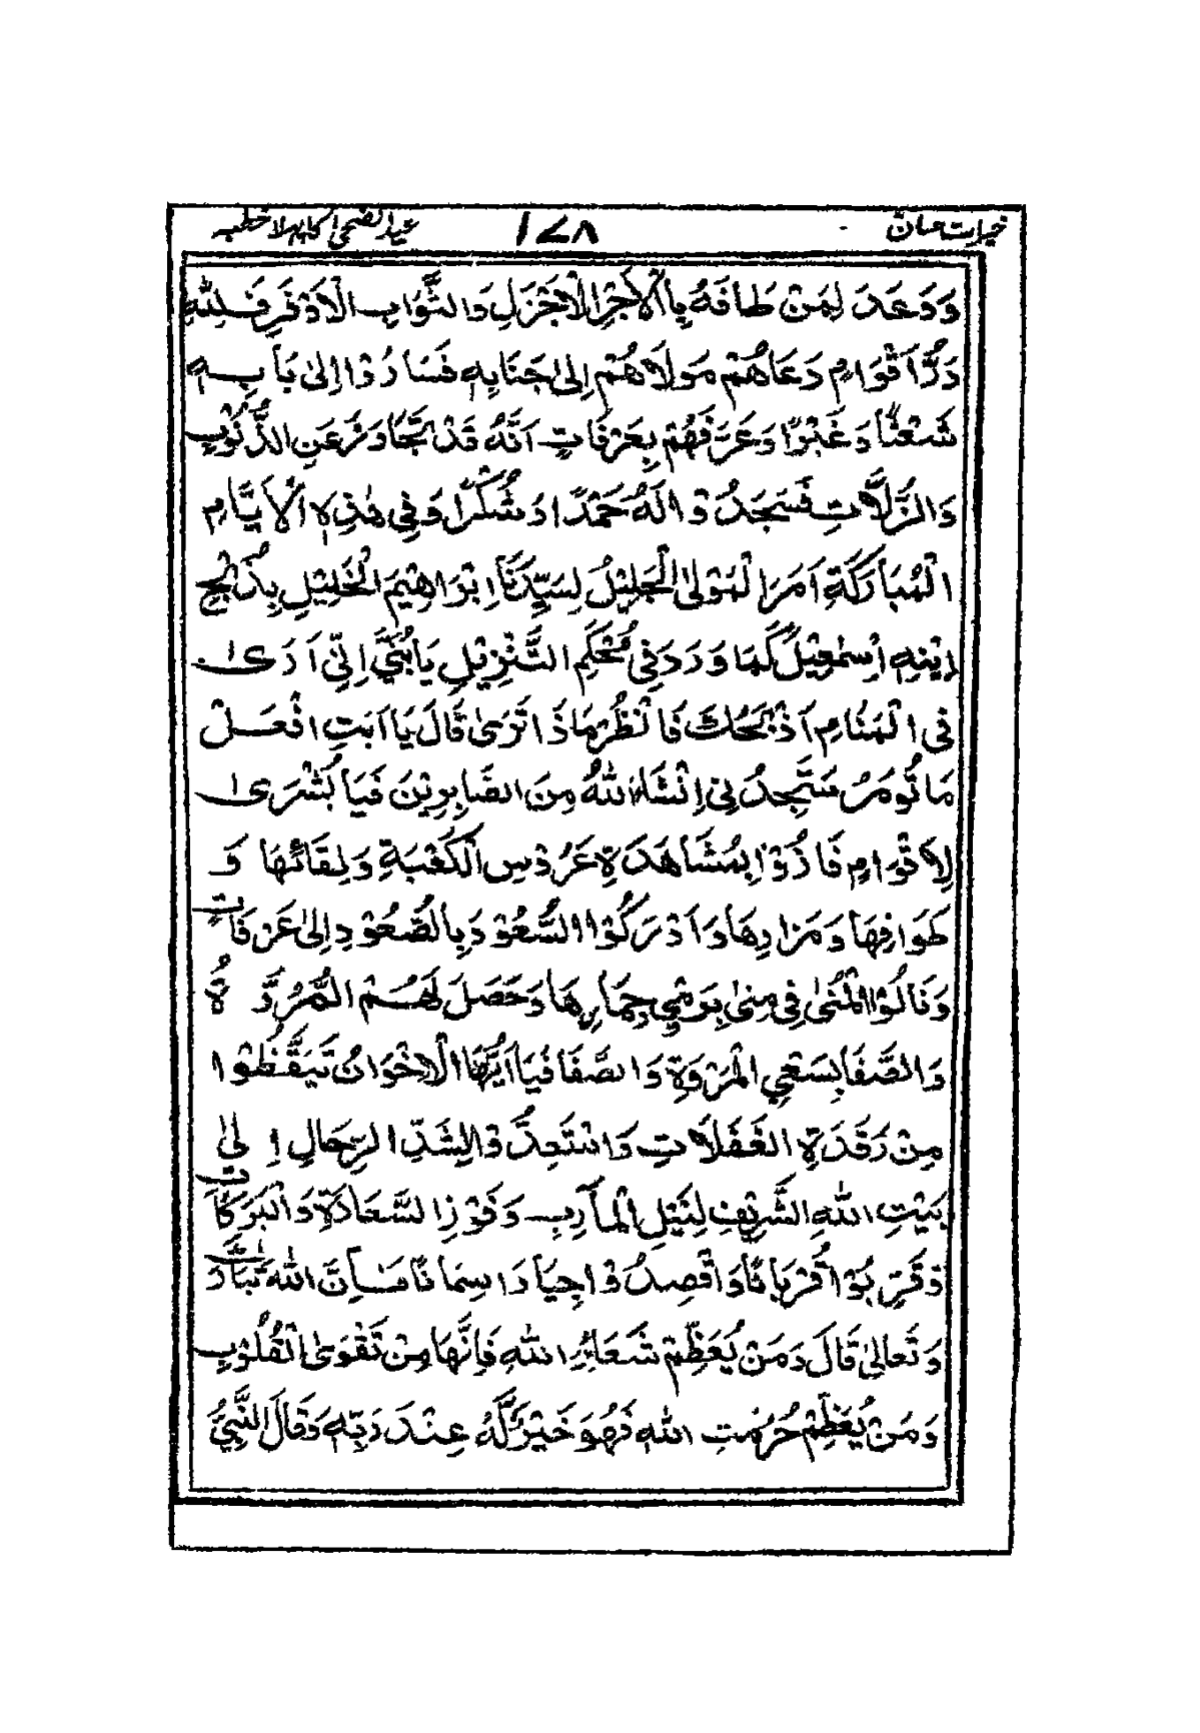 خیرات حسان ۱۷۸ عیدالضحیٰ کا پہلا خطبہ
وَوَعَدَ لِمَنْ طَافَهُ بِالْاَجْرِ الْاَجْزَلِ وَالثَّوَابِ الْاَوْفَرِ فَلِلّٰهِ
دَرُّ اَقْوَامٍ دَعَاهُمْ مَوْلَاهُمْ اِلىٰ جَنَابِهٖ فَسَارُوْا اِلىٰ بَابِهٖ
شَعْثًا وَغَبَرًا وَعَرَّفَهُمْ بِعَرَفَاتٍ اَنَّهُ قَدْ تَجَاوَزَ عَنِ الذُّنُوْبِ
وَالزَّلَّاتِ فَسَجَدُوْا لَهُ حَمْدًا وَشُكْرًا وَفِي هٰذِهِ الْاَيَّامِ
الْمُبَارَكَةِ اَمَرَ الْمَوْلىٰ الْجَلِيْلُ لِسَيِّدِنَا اِبْرَاهِيْمَ الْخَلِيْلِ بِذَبْحِ
اِبْنِهٖ اِسْمٰعِيْلَ كَمَا وَرَدَ فِي مُحْكَمِ التَّنْزِيْلِ يَا بُنَيَّ اِنِّي اَرَىٰ
فِي الْمَنَامِ اَذْبَحُكَ فَانْظُرْ مَاذَا تَرَىٰ قَالَ يَا اَبَتِ افْعَلْ
مَا تُؤْمَرُ سَتَجِدُنِي اِنْشَاءَ اللهُ مِنَ الصَّابِرِيْنَ فَيَا بُشْرَىٰ
لِاَقْوَامٍ فَازُوْا بِمُشَاهَدَةِ عَرُوْسِ الْكَعْبَةِ وَلِقَائِهَا وَ
طَوَافِهَا وَمَزَارِهَا وَاَدْرَكُوْا السُّعُوْدَ بِالصُّعُوْدِ اِلىٰ عَرَفَاتٍ
وَنَالُوْا الْمُنىٰ فِي مِنىٰ بِرَمْيِ جِمَارِهَا وَحَصَلَ لَهُمُ الْمُرُوَّةُ
وَالصَّفَا بِسَعْيِ الْمَرْوَةِ وَالصَّفَا فَيَا اَيُّهَا الْاِخْوَانُ تَيَقَّظُوْا
مِنْ رَقْدَةِ الْغَفَلَاتِ وَاسْتَعِدُّوْا لِشَدِّ الرِّحَالِ اِلىٰ
بَيْتِ اللهِ الشَّرِيْفِ لِنَيْلِ الْمَآرِبِ وَفَوْزِ السَّعَادَةِ وَالْبَرَكَاتِ
وَقَرِّبُوْا قُرْبَانًا وَاقْصِدُوْا جِيَادًا سِمَانًا حِسَانًا فَاِنَّ اللهَ تَبَارَكَ
وَتَعَالىٰ قَالَ وَمَنْ يُعَظِّمْ شَعَائِرَ اللهِ فَاِنَّهَا مِنْ تَقْوَىٰ الْقُلُوْبِ
وَمَنْ يُعَظِّمْ حُرُمٰتِ اللهِ فَهُوَ خَيْرٌ لَّهُ عِنْدَ رَبِّهٖ وَقَالَ النَّبِيُّ